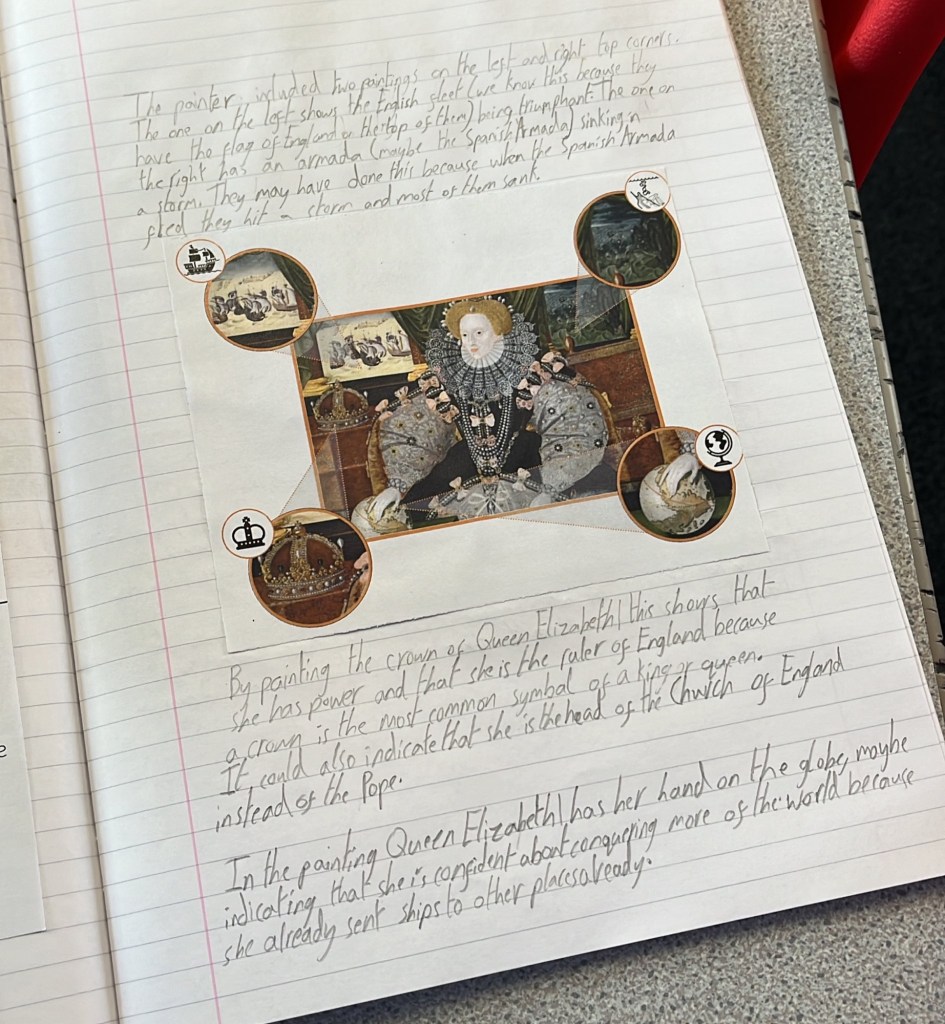 The painter, included two paintings on the left and right top corners.
The one on the left shows the English fleet (we know this because they
have the flag of England on the top of them) being triumphant. The one on
the right has an armada (maybe the Spanish Armada) sinking in
a storm. They may have done this because when the Spanish Armada
fled they hit a storm and most of them sank.
By painting the crown of Queen Elizabeth I this shows that
she has power and that she is the ruler of England because
a crown is the most common symbol of a king or queen.
It could also indicate that she is the head of the Church of England
instead of the Pope.
In the painting Queen Elizabeth I, has her hand on the globe, maybe
indicating that she is confident about conquering more of the world because
she already sent ships to other places already.
e